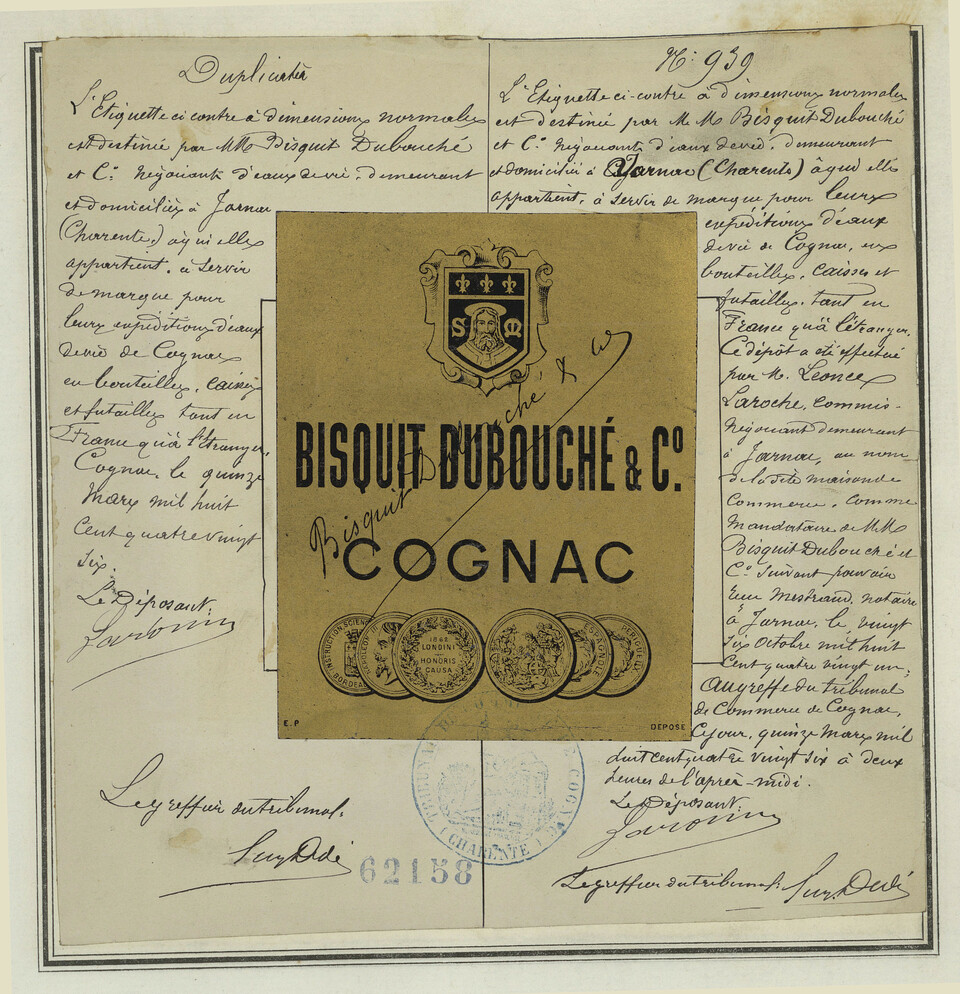 Duplicata
L'Etiquette ci contre à dimensions normales
est destinée par MM Bisquit Dubouché
et Co. Négociants d'eaux de vie, demeurant
et domiciliés à Jarnac
(Charente) à qui elle
appartient, à servir
de marque pour
leurs expéditions d'eaux
de vie de Cognac
en bouteilles, caisses
et futailles tant en
France qu'à l'étranger,
Cognac, le quinze
Mars mil huit
cent quatre vingt
six.
Le Déposant:
Le greffier du tribunal.
62158
No. 939
L'Etiquette ci-contre à dimensions normales
est destinée par M.M. Bisquit Dubouché
et Co. Négociants d'eaux de vie, demeurant
et domiciliés à Jarnac (Charente) à qui elle
appartient, à servir de marque pour leurs
expéditions d'eaux
de vie de Cognac, en
bouteilles, caisses et
futailles, tant en
France qu'à l'étranger,
Ce dépôt a été effectué
par M. Léonce
Laroche, commis-
Négociant demeurant
à Jarnac, au nom
de la dite maison de
commerce, comme
mandataire de MM
Bisquit Dubouché et
Co. Suivant pouvoir
Mestraud, notaire
à Jarnac, le vingt
six Octobre mil huit
cent quatre vingt un,
Au greffe du tribunal
de Commerce de Cognac,
Ce jour, quinze Mars mil
huit cent quatre vingt six à deux
heures de l'après-midi.
Le Déposant,
Le greffier du tribunal.
S M
BISQUIT DUBOUCHÉ & Co.
Bisquit Dubouché & Co
COGNAC
INSTRUCTION SCIENC
BORDEAUX
NAPOLEON III
1862
LONDINI
HONORIS
CAUSA
ESPAGNOLE
PERIGUEUX
E.P
DEPOSE
TRIBUNAL DE COGNAC
(CHARENTE)